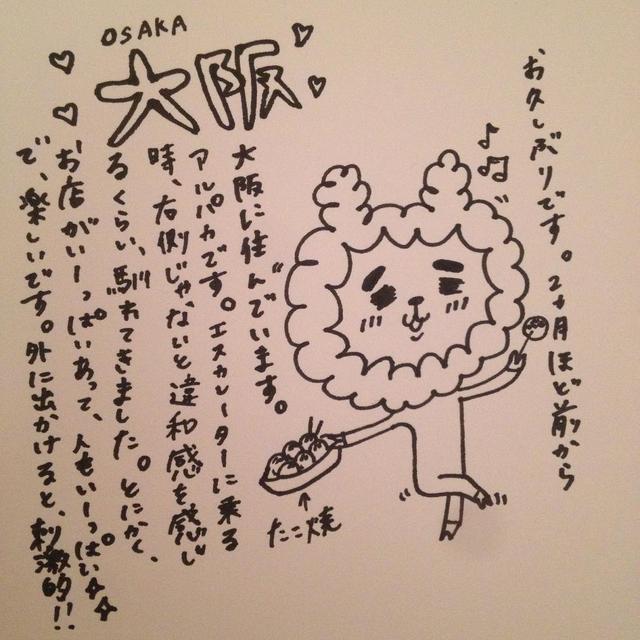 OSAKA
大阪
お久しぶりです。2ヶ月ほど前から
大阪に住んでいます。
アルパカです。エスカレーターに乗る
時、右側じゃないと違和感を感じ
るくらい、馴れてきました。とにかく、
お店がいーっぱいあって、人もいーっぱい
で、楽しいです。外に出かけると、刺激的!!
たこ焼